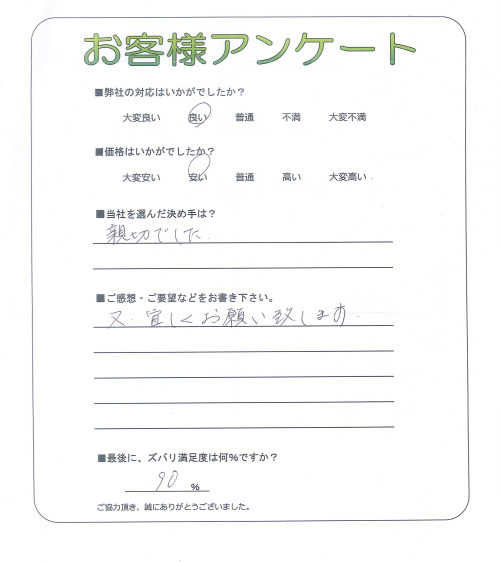 お客様アンケート
■弊社の対応はいかがでしたか？
大変良い 良い 普通 不満 大変不満
■価格はいかがでしたか？
大変安い 安い 普通 高い 大変高い
■当社を選んだ決め手は？
親切でした.
■ご感想・ご要望などをお書き下さい。
又.宜しくお願い致します.
■最後に、ズバリ満足度は何%ですか？
90 %
ご協力頂き、誠にありがとうございました。